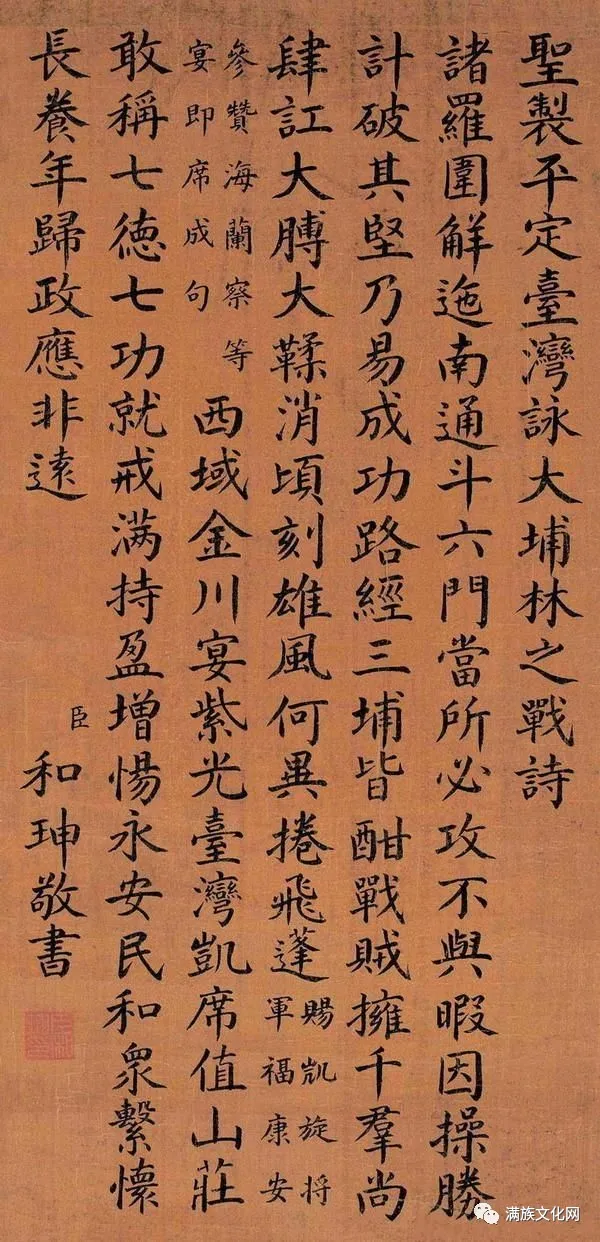 聖製平定臺灣詠大埔林之戰詩
諸羅圍觧迤南通斗六門當所必攻不與暇因操勝
計破其堅乃易成功路經三埔皆酣戰賊擁千羣尚
肆訌大膊大鞣消頃刻雄風何異捲飛蓬
賜凱旋将
軍福康安
參贊海蘭察等
宴即席成句
西域金川宴紫光臺灣凱席值山莊
敢稱七徳七功就戒满持盈增惕永安民和衆繫懷
長養年歸政應非遠
臣和珅敬書
满族文化网